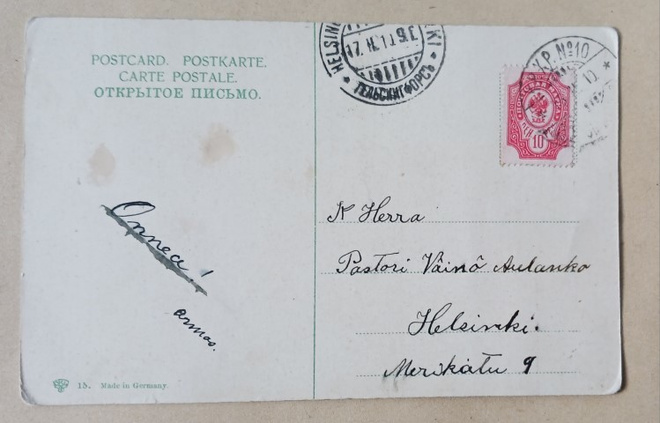 POSTCARD. POSTKARTE.
CARTE POSTALE.
ОТКРЫТОЕ ПИСЬМО.
HELSINKI
ГЕЛЬСИНГФОРСЪ
K.P. No 10
10
Onnea!
armas.
N Herra
Pastori Väinö Aulanko
Helsinki.
Merikatu 9
15. Made in Germany.